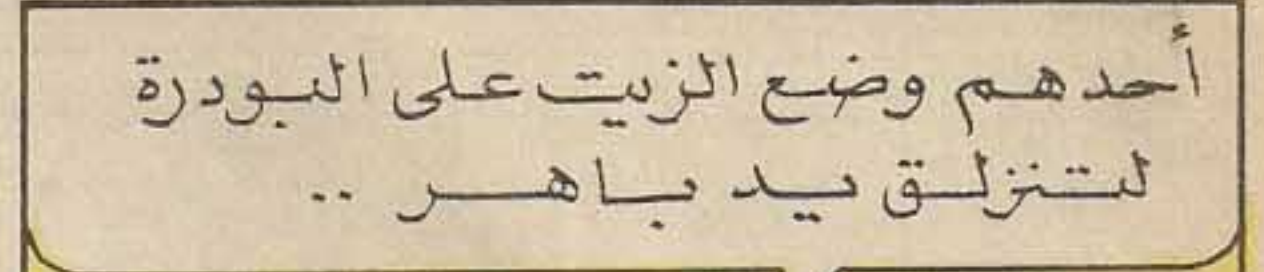 أحدهم وضع الزيت على البودرة
لتنزلق يد باهر ..